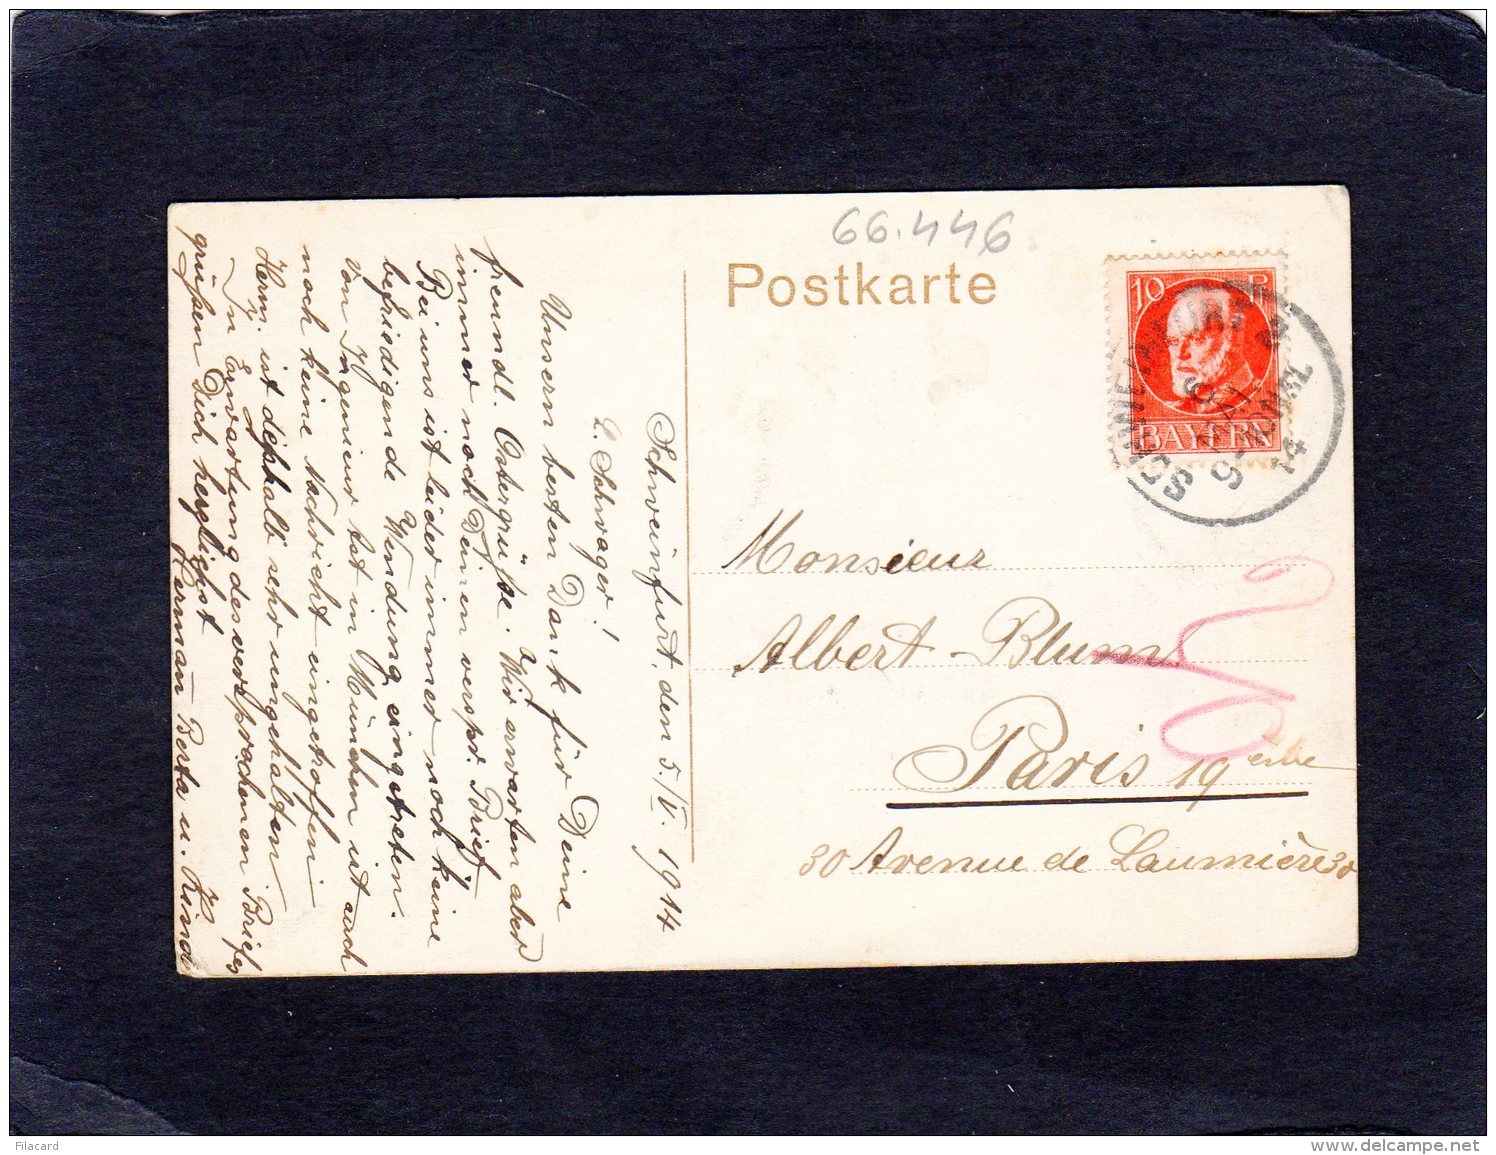 66.446
Postkarte
10 Pf
BAYERN
SCHWEINFURT 2
6 MAI
9-10 VM.
14
Monsieur
Albert Blum
Paris 19
30 Avenue de Laumière 30
Schweinfurt, den 5./V. 1914
L. Schwager!
Unsern besten Dank für Deine
freundl. Ostergrüße. Wir erwarten aber
immer noch Deinen verspr. Brief
Bei uns ist leider immer noch keine
befriedigende Wendung eingetreten.
Von Ingenieur tet in München ist auch
noch keine Nachricht eingetroffen
Herm. ist deßhalb sehr ungehalten
In Erwartung des versprochenen Briefes
grüßen Dich herzlichst
Herman Berta u. Kind
Filacard
www.delcampe.net